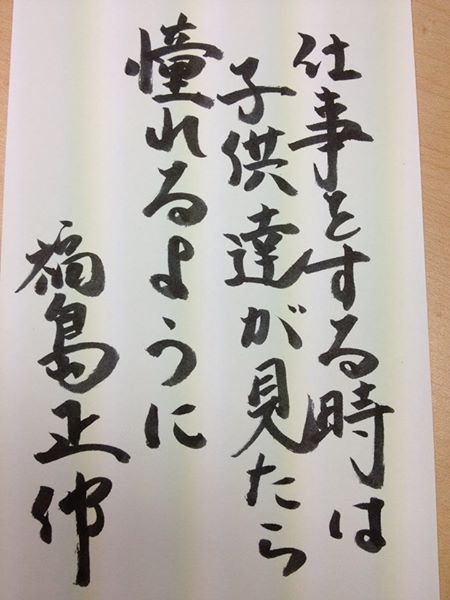 仕事をする時は
子供達が見たら
憧れるように
福島正伸